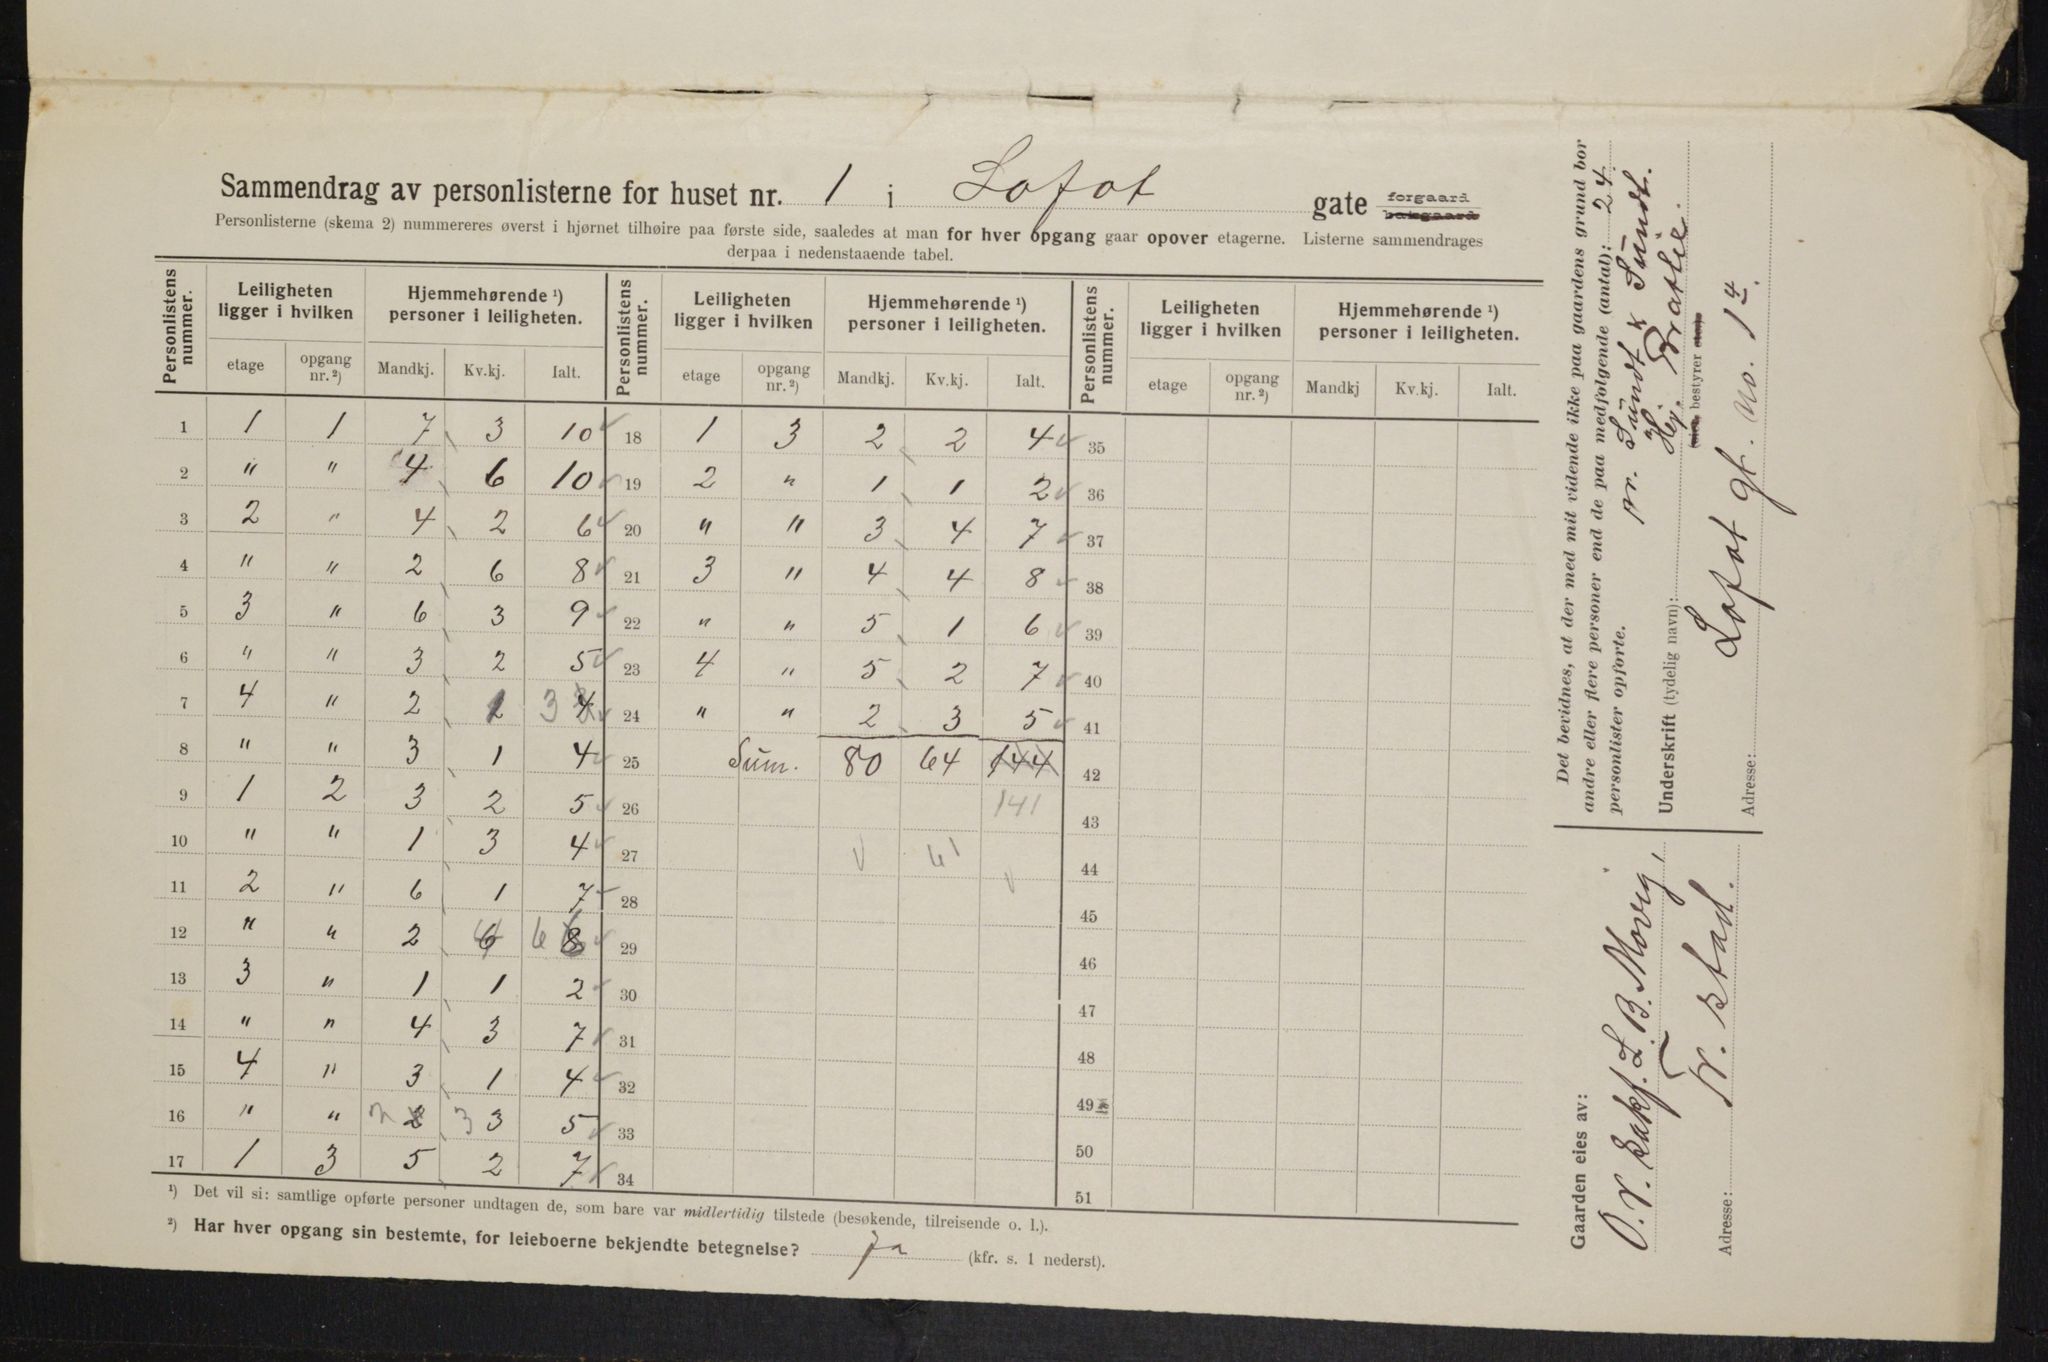 Sammendrag av personlisterne for huset nr. 1 i Lofot gate forgaard
bakgaard
Personlisterne (skema 2) nummereres øverst i hjørnet tilhøire paa første side, saaledes at man for hver opgang gaar opover etagerne. Listerne sammendrages
derpaa i nedenstaaende tabel.
Personlistens nummer. Leiligheten ligger i hvilken Hjemmehørende ¹) personer i leiligheten. Personlistens nummer. Leiligheten ligger i hvilken Hjemmehørende ¹) personer i leiligheten. Personlistens nummer. Leiligheten ligger i hvilken Hjemmehørende ¹) personer i leiligheten.
etage opgang nr. ²) Mandkj. Kv.kj. Ialt. etage opgang nr. ²) Mandkj. Kv.kj. Ialt. etage opgang nr. ²) Mandkj Kv.kj. Ialt.
1 1 1 7 3 10 18 1 3 2 2 4 35
2 " " 4 6 10 19 2 " 1 1 2 36
3 2 " 4 2 6 20 " " 3 4 7 37
4 " " 2 6 8 21 3 " 4 4 8 38
5 3 " 6 3 9 22 " " 5 1 6 39
6 " " 3 2 5 23 4 " 5 2 7 40
7 4 " 2 1 3 4 24 " " 2 3 5 41
8 " " 3 1 4 25 Sum. 80 64 144 42
9 1 2 3 2 5 26 141 43
10 " " 1 3 4 27 61 44
11 2 " 6 1 7 28 45
12 " " 2 6 6 8 29 46
13 3 " 1 1 2 30 47
14 " " 4 3 7 31 48
15 4 " 3 1 4 32 49
16 " " 2 2 3 3 5 33 50
17 1 3 5 2 7 34 51
¹) Det vil si: samtlige opførte personer undtagen de, som bare var midlertidig tilstede (besøkende, tilreisende o. l.).
²) Har hver opgang sin bestemte, for leieboerne bekjendte betegnelse? Ja (kfr. s. 1 nederst).
Det bevidnes, at der med mit vidende ikke paa gaardens grund bor
andre eller flere personer end de paa medfølgende (antal): 24
personlister opførte. pr. Sundt & Sundt.
Hej. Bratlie.
Underskrift (tydelig navn):
bestyrer
Lofot gt. No. 1 4.
Adresse:
Gaarden eies av:
O.r. sakf. L. B. Morig,
Adresse: N. stad.